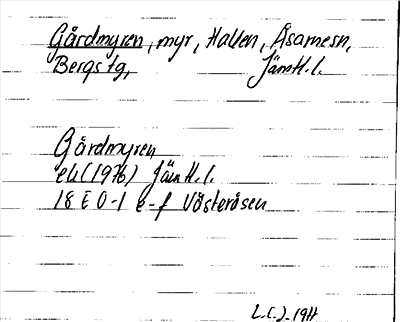 Gårdmyren, myr, Hallen, Åsarnesn,
Bergs tg, Jämtl.l.
Gårdmyren
ek(1976) Jämtl.l.
18 E 0-1 e-f Västeråsen